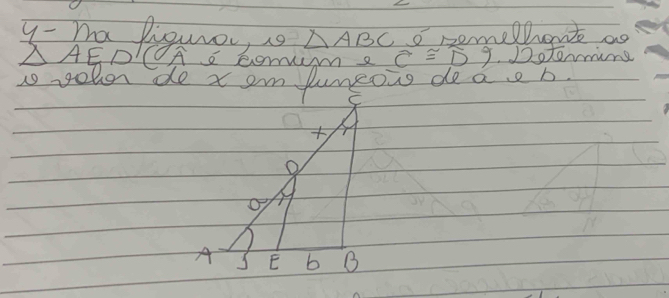 4- Na figura, o △ABC é semelhante ao
△AED (Â é comum e Ĉ ≅ D̂). Determine
o valor de x em função de a e b.
C
x
D
a
A E b B